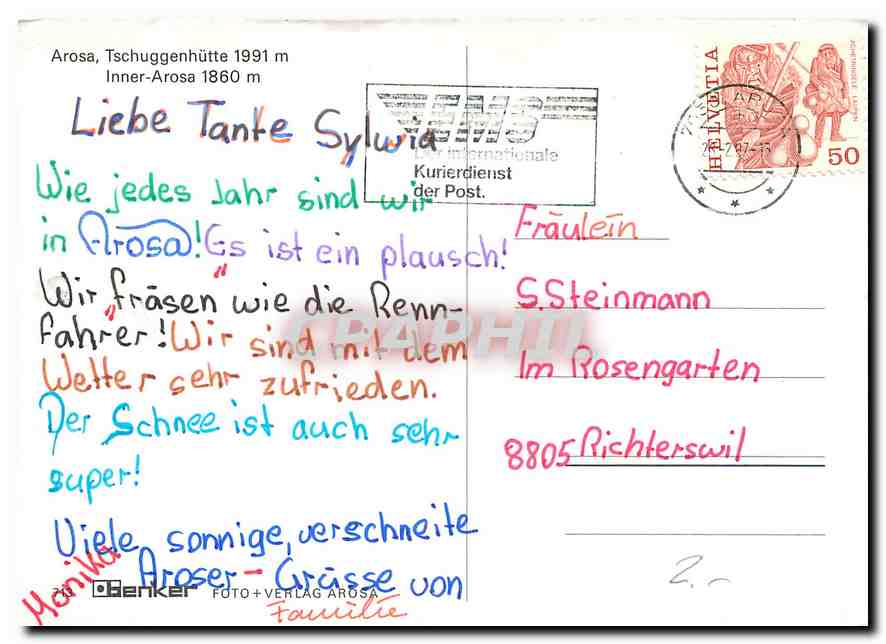 Arosa, Tschuggenhütte 1991 m
Inner-Arosa 1860 m
Liebe Tante Sylvia
Wie jedes Jahr sind wir
in Arosa! Es ist ein plausch!
Wir "fräsen" wie die Renn-
fahrer! Wir sind mit dem
Wetter sehr zufrieden.
Der Schnee ist auch sehr
super!
Viele sonnige, verschneite
Aroser-Grüsse von
Familie
Monika
713 Denker FOTO+VERLAG AROSA
EMS
Der internationale
Kurierdienst
der Post.
HELVETIA
50
Fräulein
S. Steinmann
Im Rosengarten
8805 Richterswil
2.-